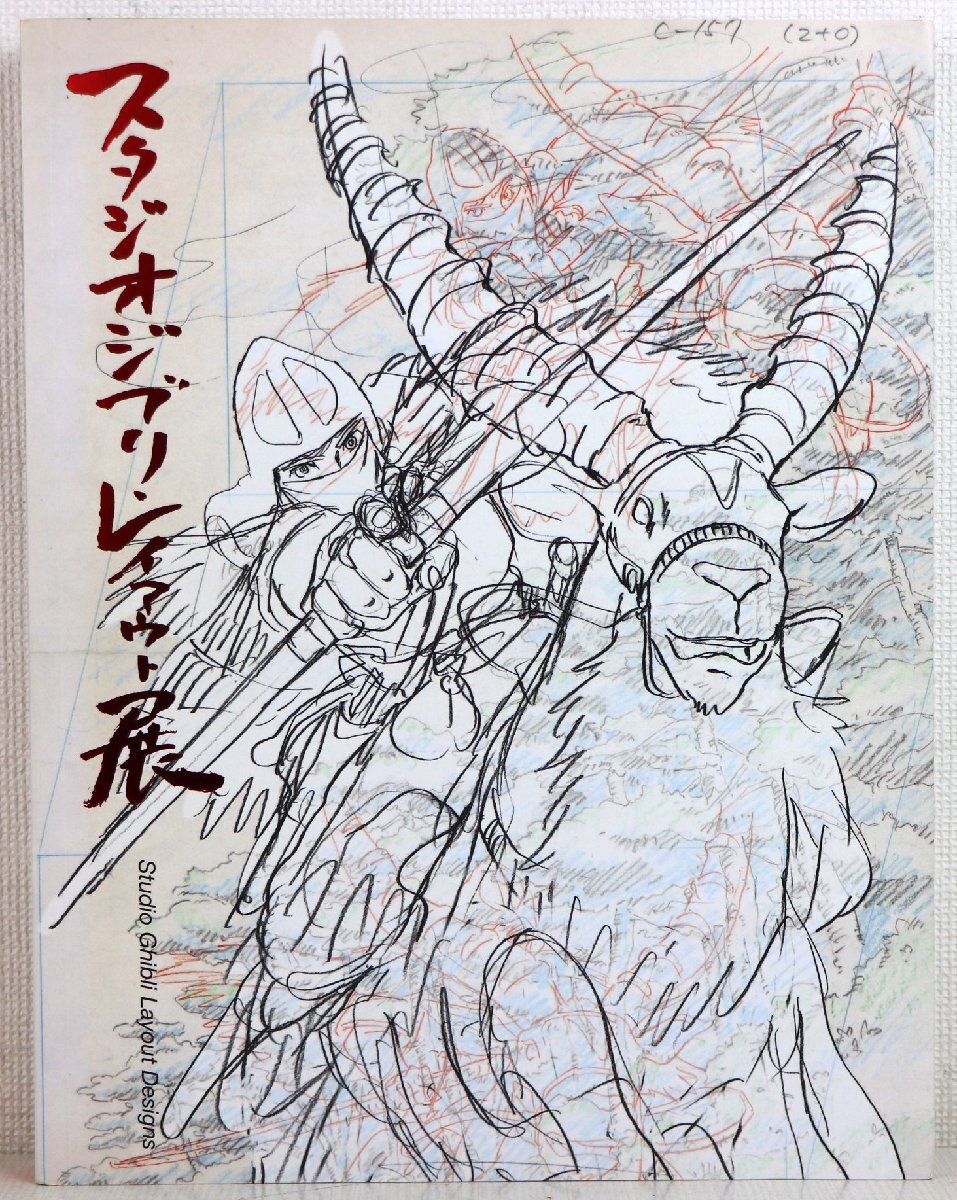 C-157 (2+0)
スタジオジブリ・レイアウト展
Studio Ghibli Layout Designs